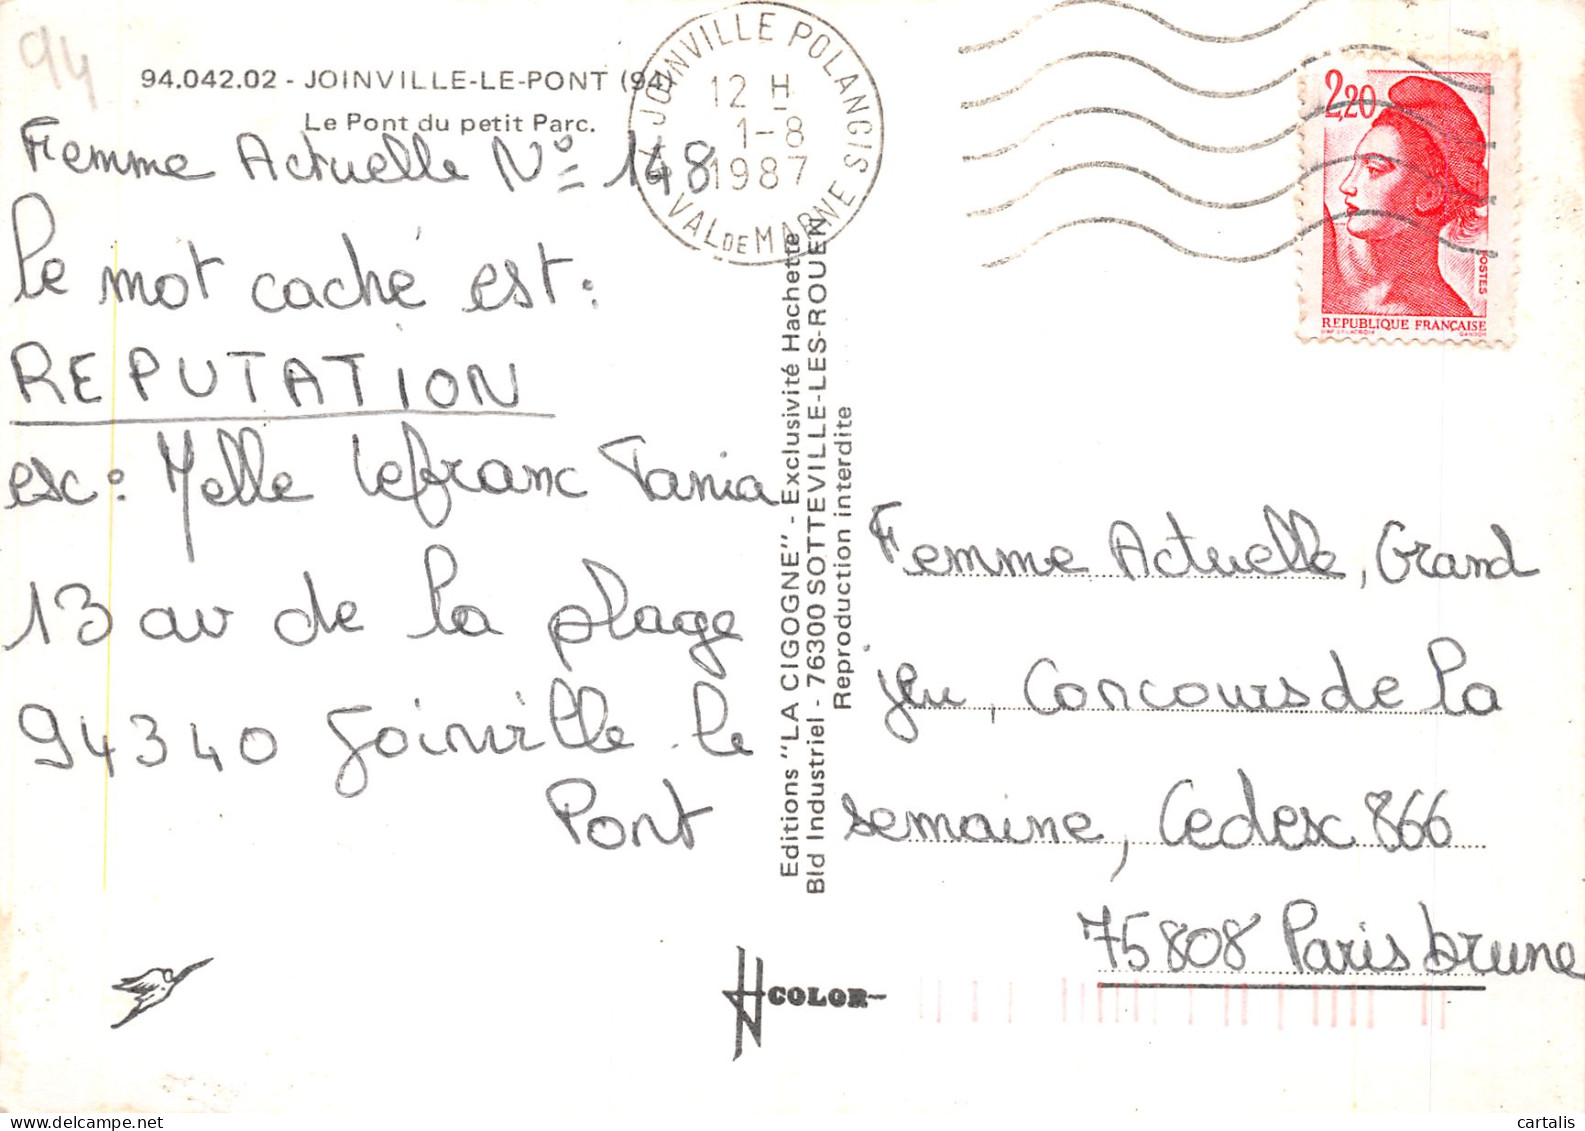 94
94.042.02 - JOINVILLE-LE-PONT (94)
Le Pont du petit Parc.
Femme Actuelle N° 148
le mot caché est:
REPUTATION
esc: Melle Lefranc Tania
13 av de la plage
94340 Joinville-le
Pont
JOINVILLE POLANGIS
12 H
1-8
1987
VAL DE MARNE
2,20
POSTES
REPUBLIQUE FRANÇAISE
Editions "LA CIGOGNE" - Exclusivité Hachette
Bld Industriel - 76300 SOTTEVILLE-LES-ROUEN
Reproduction interdite
Femme Actuelle, Grand
jeu, Concours de la
semaine, Cedex 866
75808 Paris brune
COLOR
cartalis.com